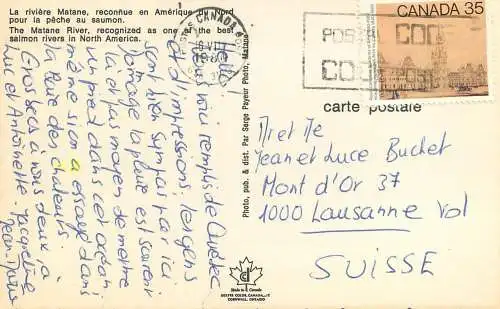 La rivière Matane, reconnue en Amérique du Nord
pour la pêche au saumon.
The Matane River, recognized as one of the best
salmon rivers in North America.
Hello!
remplis de Québec
et d'impressions, les gens
sont bien sympas par ici
dommage la pluie est souvent
là et pas moyen de mettre
un pied dans cet océan
même si on a essayé dans
la baie des chaleurs.
Gros becs à vous deux à
Luc et Antoinette Jacqueline
Jean-
Photo, pub. & dist. Par Serge Payeur Photo, Matane
CANADA
CANADA 35
POST
CODE
CODE
POST
carte postale
Jean et Luce Buchet
Mont d'Or 37
1000 Lausanne Vd
SUISSE
Made in Canada
DEXTER COLOR, CANADA, LTÉE
CORNWALL, ONTARIO